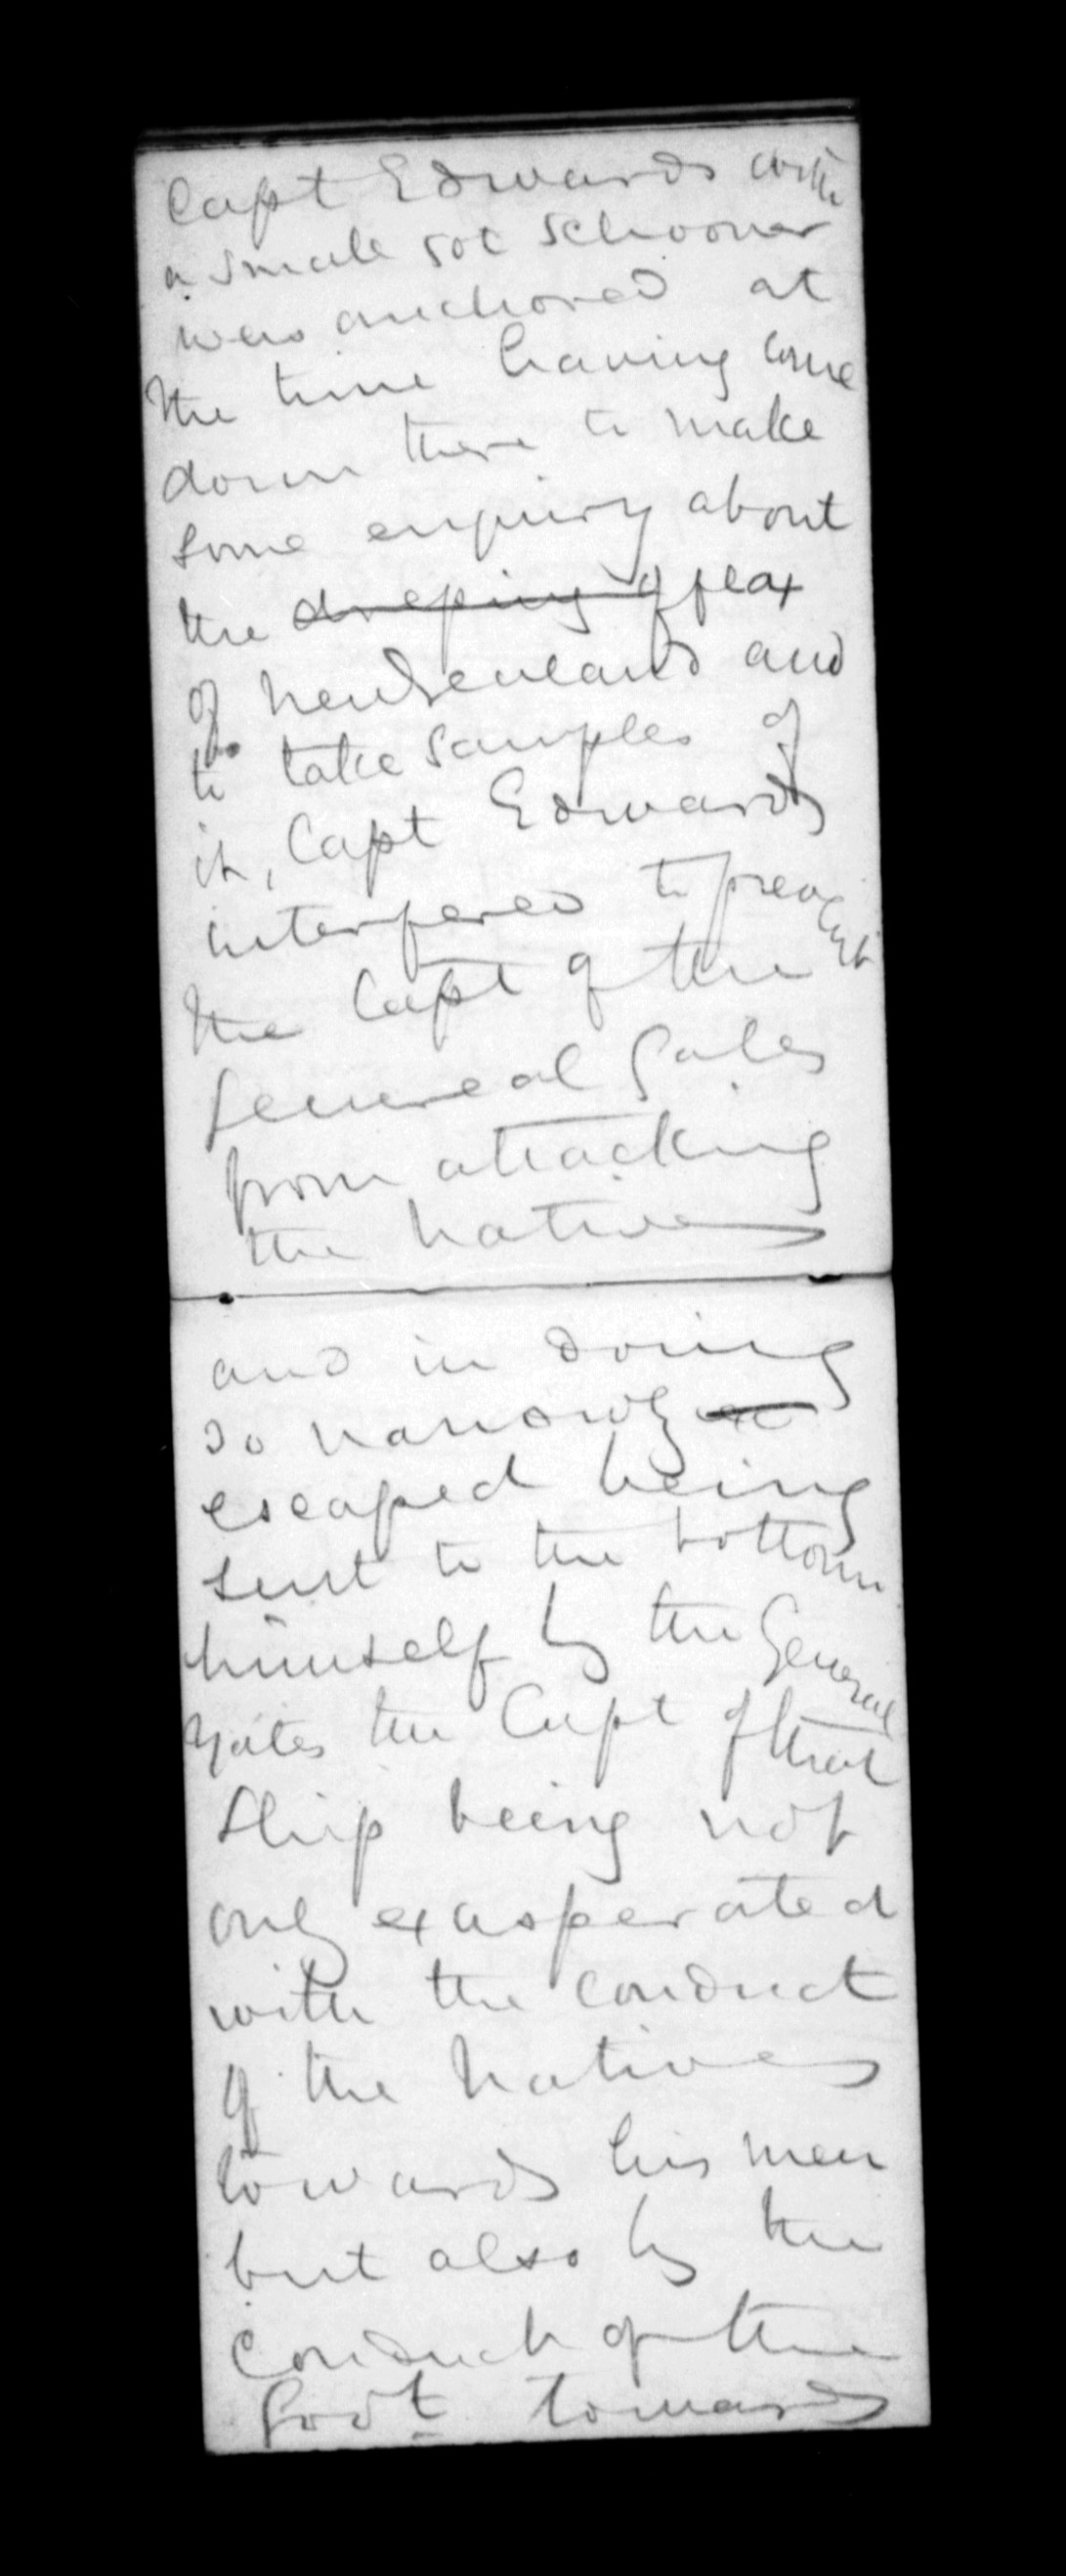 Capt Edwards with
a small sol schooner
was anchored at
the time having come
down there to make
some enquiry about
the of flax
of New Zealand and
to take samples of
it, Capt Edwards
interfered to prevent
the Capt of the
General Gates
from attacking
the natives
and in doing
so narrowly
escaped being
sent to the bottom
himself by the General
Yates the Capt of that
Ship being not
only exasperated
with the conduct
of the natives
towards his men
but also by the
conduct of the
Govt towards